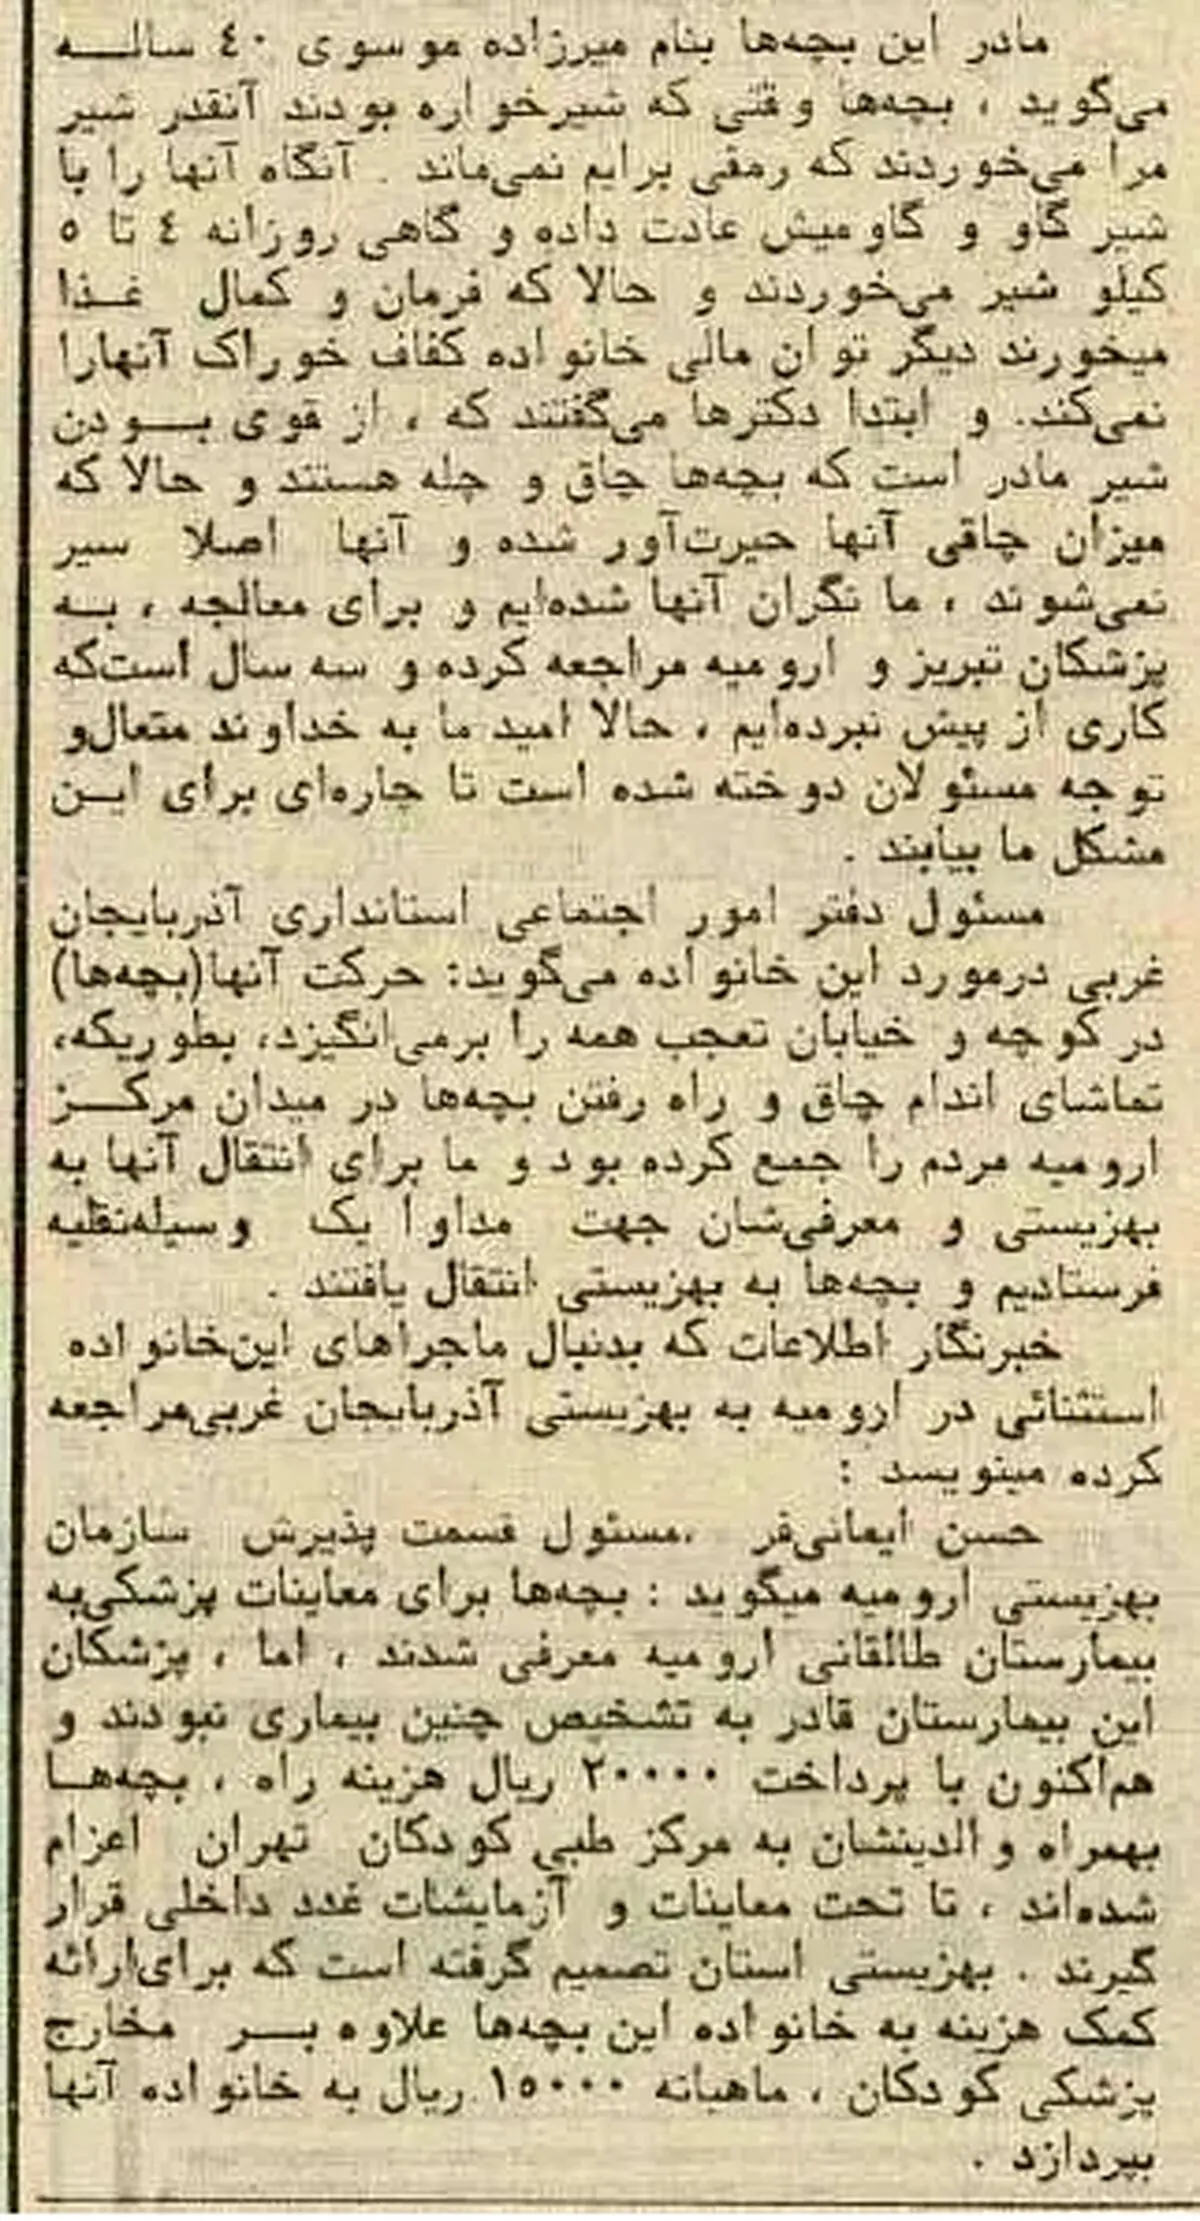 مادر این بچه‌ها بنام میرزاده موسوی ۴۰ سالــه
می‌گوید ، بچه‌ها وقتی که شیرخواره بودند آنقدر شیر
مرا می‌خوردند که رمقی برایم نمی‌ماند . آنگاه آنها را با
شیر گاو و گاومیش عادت داده و گاهی روزانه ٤ تا ٥
کیلو شیر می‌خوردند و حالا که فرمان و کمال غـذا
میخورند دیگر توان مالی خانواده کفاف خوراک آنهارا
نمی‌کند. و ابتدا دکترها می‌گفتند که ، از قوی بــودن
شیر مادر است که بچه‌ها چاق و چله هستند و حالا که
میزان چاقی آنها حیرت‌آور شده و آنها اصلا سیر
نمی‌شوند ، ما نگران آنها شده‌ایم و برای معالجه ، بـه
پزشکان تبریز و ارومیه مراجعه کرده و سه سال است‌که
کاری از پیش نبرده‌ایم ، حالا امید ما به خداوند متعال‌و
توجه مسئولان دوخته شده است تا چاره‌ای برای ایـن
مشکل ما بیابند .
مسئول دفتر امور اجتماعی استانداری آذربایجان
غربی درمورد این خانواده می‌گوید: حرکت آنها(بچه‌ها)
در کوچه و خیابان تعجب همه را برمی‌انگیزد، بطوریکه،
تماشای اندام چاق و راه رفتن بچه‌ها در میدان مرکــز
ارومیه مردم را جمع کرده بود و ما برای انتقال آنها به
بهزیستی و معرفی‌شان جهت مداوا یک وسیله‌نقلیه
فرستادیم و بچه‌ها به بهزیستی انتقال یافتند .
خبرنگار اطلاعات که بدنبال ماجراهای این‌خانواده
استثنائی در ارومیه به بهزیستی آذربایجان غربی‌مراجعه
کرده مینویسد :
حسن ایمانی‌فر ،مسئول قسمت پذیرش سازمان
بهزیستی ارومیه میگوید : بچه‌ها برای معاینات پزشکی‌به
بیمارستان طالقانی ارومیه معرفی شدند ، اما ، پزشکان
این بیمارستان قادر به تشخیص چنین بیماری نبودند و
هم‌اکنون با پرداخت ۲۰۰۰۰ ریال هزینه راه ، بچه‌هـا
بهمراه والدینشان به مرکز طبی کودکان تهران اعزام
شده‌اند ، تا تحت معاینات و آزمایشات غدد داخلی قرار
گیرند . بهزیستی استان تصمیم گرفته است که برای‌ارائه
کمک هزینه به خانواده این بچه‌ها علاوه بــر مخارج
پزشکی کودکان ، ماهیانه ۱۵۰۰۰ ریال به خانواده آنها
بپردازد .